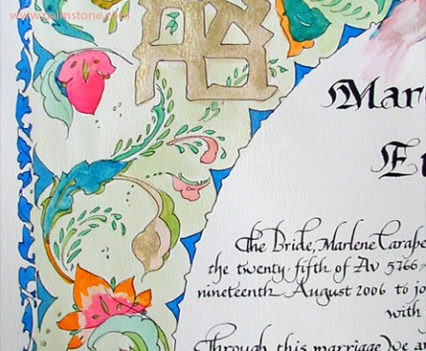 Mar
The Bride, Marlene Carabe
the twenty-fifth of Av 5766
nineteenth August 2006 to jo
with
Through this marriage we a